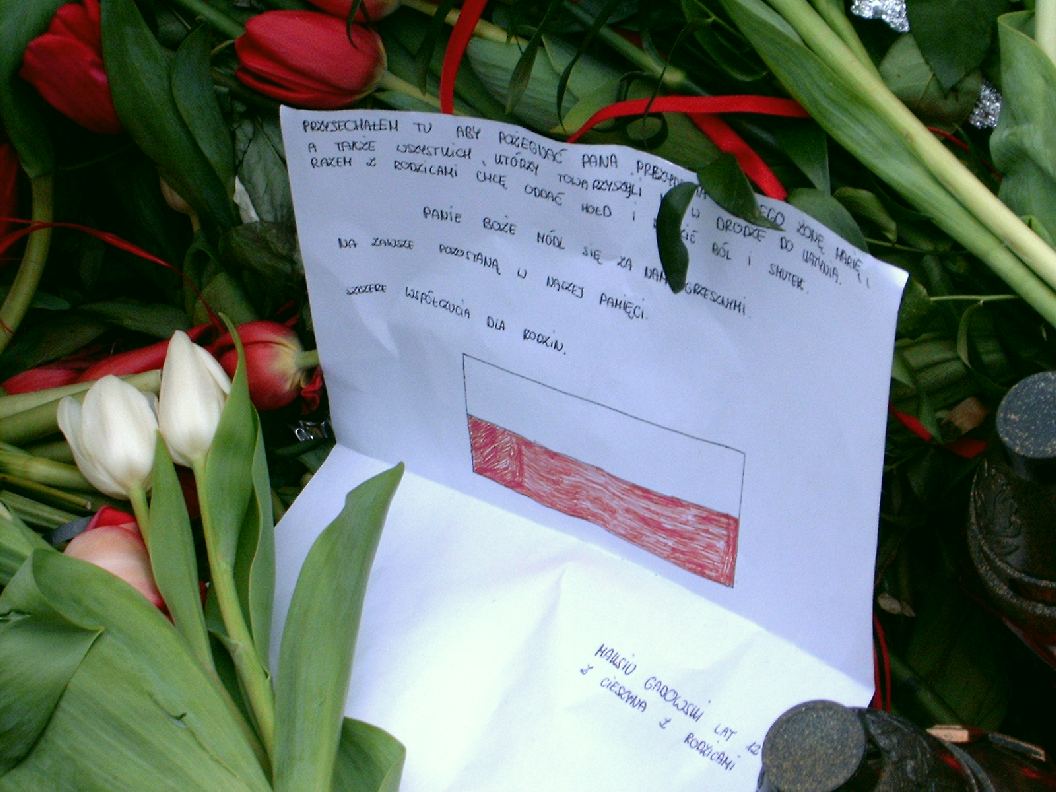 PRZYJECHAŁEM TU ABY POŻEGNAĆ PANA ŻONĘ MARIĘ,
A TAKŻE WSZYSTKICH, KTÓRZY TOWARZYSZYLI W DRODZE DO KATYNIA.
RAZEM Z RODZICAMI CHCĘ ODDAĆ HOŁD I BÓL I SMUTEK.
PANIE BOŻE MÓDL SIĘ ZA NAMI GRZESZNYMI.
NA ZAWSZE POZOSTANĄ W NASZEJ PAMIĘCI.
SZCZERE WSPÓŁCZUCIA DLA RODZIN.
MAKSIU GADOWSKI LAT 12
Z CIESZYNA Z RODZICAMI